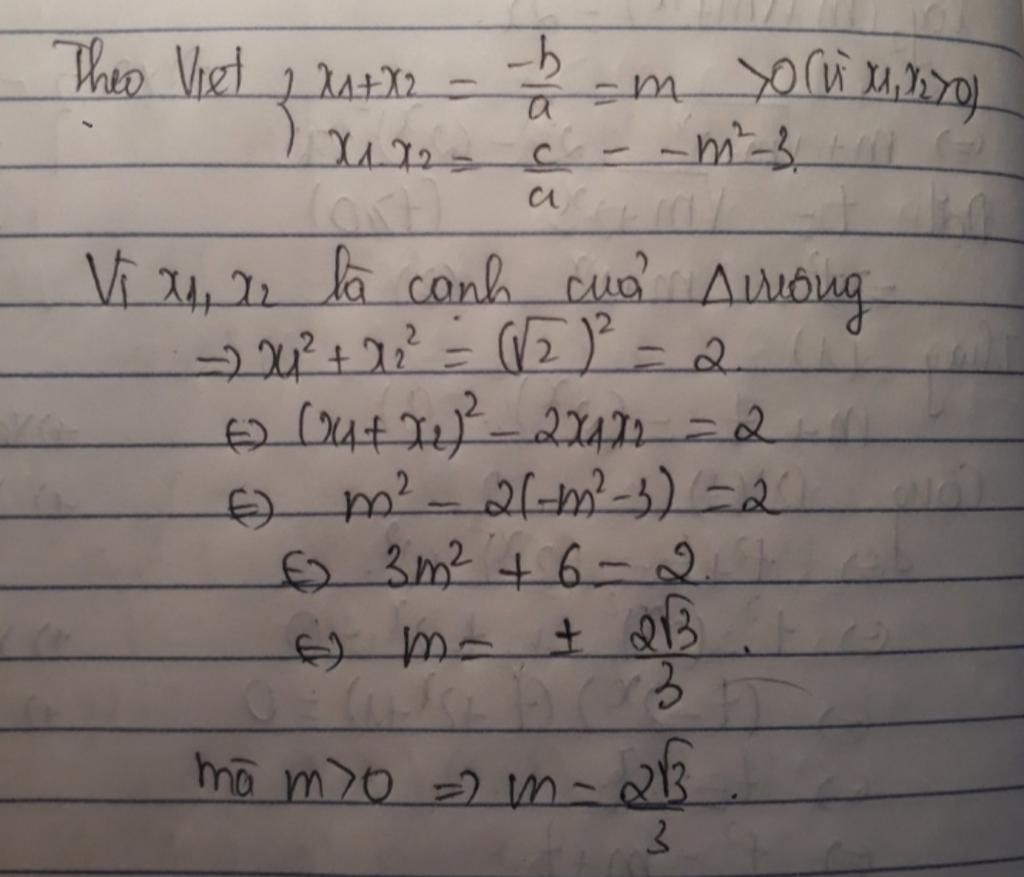 Theo Viet { x1+x2 = -b/a = m >0 (Vì x1, x2>0)
x1.x2 = c/a = -m²-3.
Vì x1, x2 là cạnh cuả Δ vuông
=> x1² + x2² = (√2)² = 2.
<=> (x1+x2)² - 2x1x2 = 2
<=> m² - 2(-m²-3) = 2
<=> 3m² + 6 = 2.
<=> m = ± 2√3/3 .
mà m>0 => m = 2√3/3 .